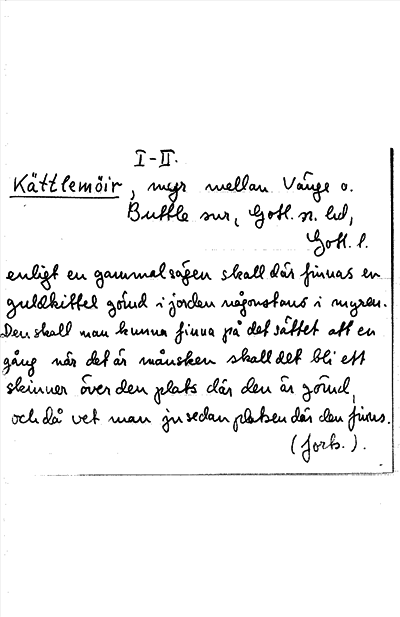 I-II.
Kättlemöir, myr mellan Vänge o.
Buttle snr, Gotl. n. hd,
Gotl. l.
enligt en gammal sägen skall där finnas en
guldkittel gömd i jorden någonstans i myren.
Den skall man kunna finna på det sättet att en
gång när det är månsken skall det bli ett
skinner över den plats där den är gömd,
och då vet man ju sedan platsen där den finns.
(forts.).